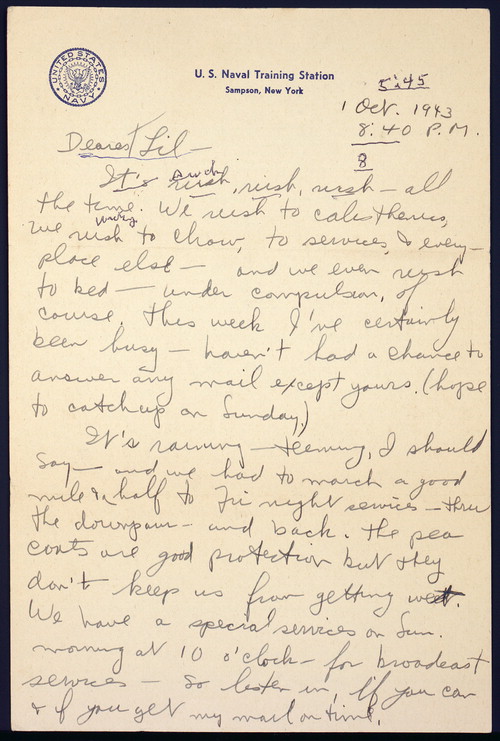 UNITED STATES NAVY
U. S. Naval Training Station
Sampson, New York
5:45
1 Oct. 1943
8:40 P.M.
8
Dearest Lil —
It's rush, rush, rush — all
the time. We rush to calisthenics,
we rush to chow, to services, & every-
place else — and we even rush
to bed — under compulsion, of
course. This week I've certainly
been busy — haven't had a chance to
answer any mail except yours. (hope
to catch up on Sunday.)
It's raining — teeming, I should
say — and we had to march a good
mile & a half to Fri night services — thru
the downpour — and back. The pea
coats are good protection but they
don't keep us from getting wet.
We have a special services on Sun.
morning at 10 o'clock — for broadcast
services — so listen in, if you can
& if you get my mail on time.